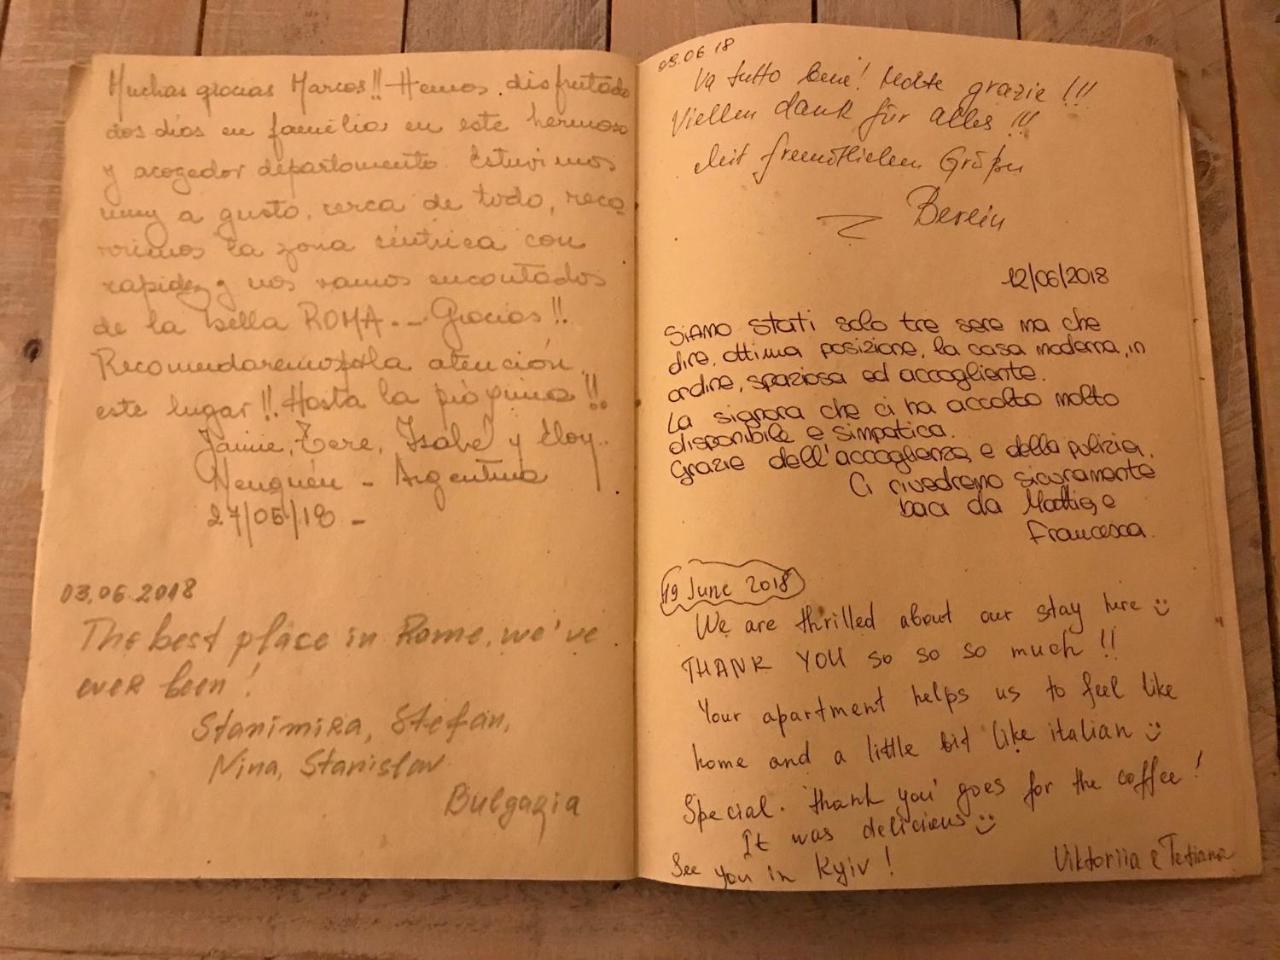 Muchas gracias Marcos!! Hemos disfrutado
dos días en familia en este hermoso
y acogedor departamento. Estuvimos
muy a gusto, cerca de todo, reco
rrimos la zona céntrica con
rapidez y nos vamos encantados
de la bella ROMA.-- Gracias!!
Recomendaremos la atención
este lugar!! Hasta la próxima!!
Jaime, Tere, Isabel y Eloy..
Neuquén - Argentina
27/05/18 -
03.06.2018
The best place in Rome, we've
ever been!
Stanimira, Stefan,
Nina, Stanislav
Bulgaria
03.06 18
Va tutto bene! Molte grazie!!!
Viellen dank für alles!!!
Mit freundlichen Grüßen
Berlin
12/06/2018
Siamo stati solo tre sere ma che
dire, ottima posizione, la casa moderna, in
ordine, spaziosa ed accogliente.
La signora che ci ha accolto molto
disponibile e simpatica.
Grazie dell'accoglienza e della pulizia.
Ci rivedremo sicuramente
baci da Mattia e
Francesca.
19 June 2018
We are thrilled about our stay here :)
THANK YOU so so so much !!
Your apartment helps us to feel like
home and a little bit like italian :)
Special. thank you' goes for the coffee!
It was delicious :)
See you in Kyiv!
Viktoriia e Tetiana